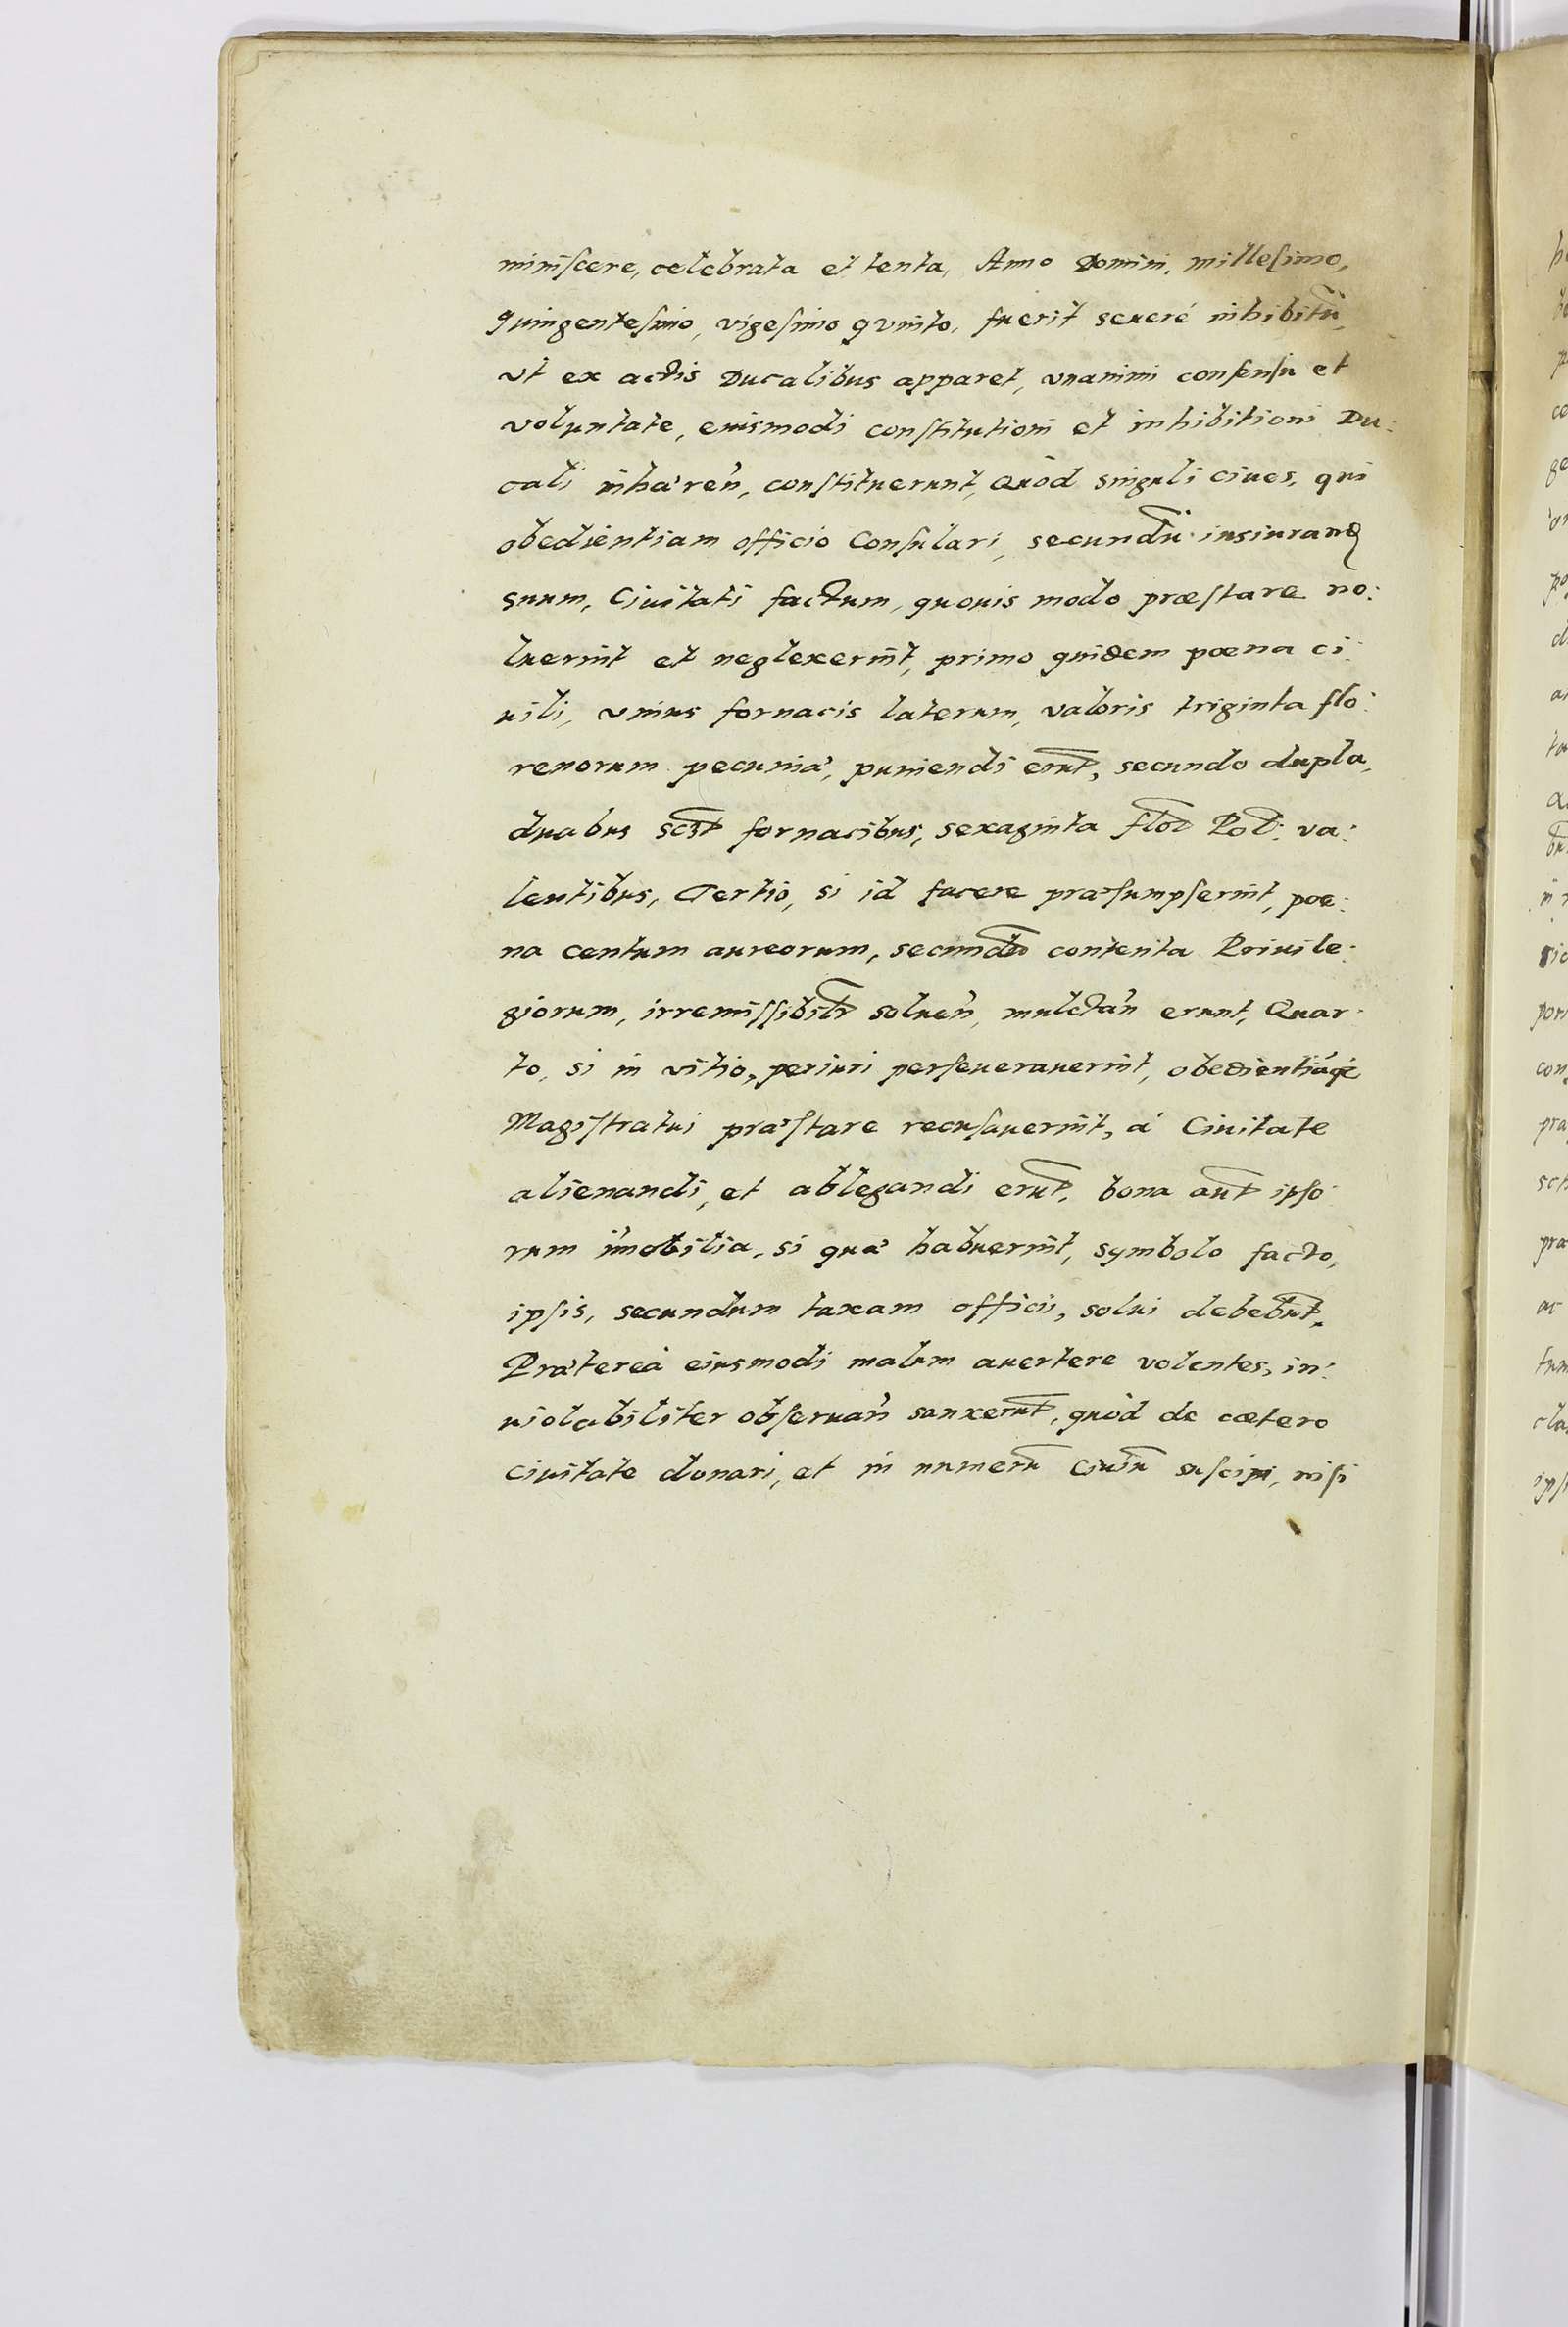 miniscere, celebrata et tenta, Anno Domini, millesimo,
quingentesimo, vigesimo qvinto, fuerit seueré inhibitū,
vt ex actis Ducalibus apparet, vnanimi consensu et
voluntate, euismodi constitutioni et inhibitioni Du:
cali inhæreñ, constituerunt, Quòd singuli ciues, qui
obedientiam officio Consulari, secundū iusiurand
suum, Ciuitati factum, quouis modo præstare no:
luerint et neglexerint, primo quidem poena ci:
uili, vnius fornacis laterum, valoris triginta flo:
renorum pecuniæ, puniendi erūt, secundo dupla,
duabus sclt fornacibus, sexaginta flor Pol: va:
lentibus, Tertio, si id facere præsumpserint, poe:
na centum aureorum, secundū contenta Priuile:
giorum, irremissibilr soluen̄, mulctan̄ erunt, Quar:
to, si in vitio, periuri perseuerauerint, obedientiāq
Magistratui præstare recusauerint, á Ciuitate
alienandi, et ablegandi erūt, bona aut ipso:
rum im̄obilia, si quæ habuerint, symbolo facto,
ipsis, secundum taxam officii, solui debebūt,
Prætereà eiusmodi malum auertere volentes, in:
uiolabiliter obseruan̄ sanxerūt, quòd de cætero
ciuitate donari, et in numerū Ciuiū suscipi, nisi